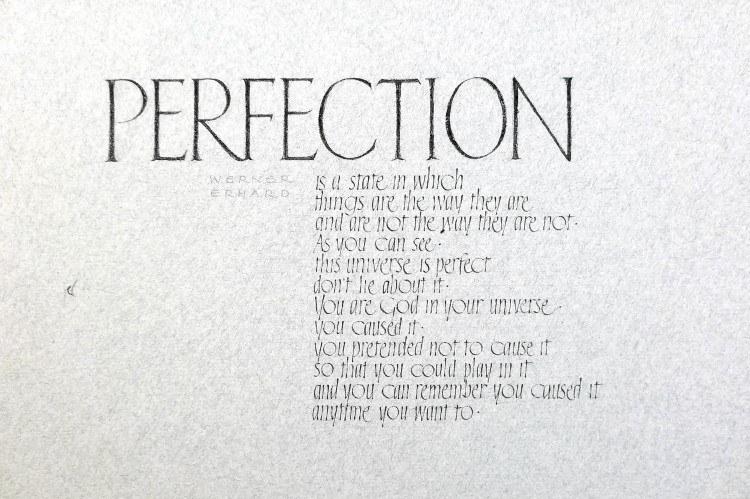 PERFECTION
WERNER
ERHARD
is a state in which
things are the way they are
and are not the way they are not.
As you can see.
this universe is perfect
don't lie about it.
You are God in your universe.
you caused it.
you pretended not to cause it
so that you could play in it
and you can remember you caused it
anytime you want to.